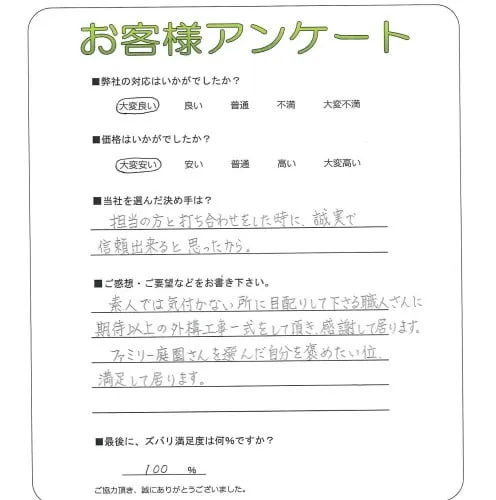 お客様アンケート
■弊社の対応はいかがでしたか？
大変良い 良い 普通 不満 大変不満
■価格はいかがでしたか？
大変安い 安い 普通 高い 大変高い
■当社を選んだ決め手は？
担当の方と打ち合わせをした時に、誠実で
信頼出来ると思ったから。
■ご感想・ご要望などをお書き下さい。
素人では気付かない所に目配りして下さる職人さんに
期待以上の外構工事一式をして頂き、感謝して居ります。
ファミリー庭園さんを選んだ自分を褒めたい位、
満足して居ります。
■最後に、ズバリ満足度は何％ですか？
100 ％
ご協力頂き、誠にありがとうございました。